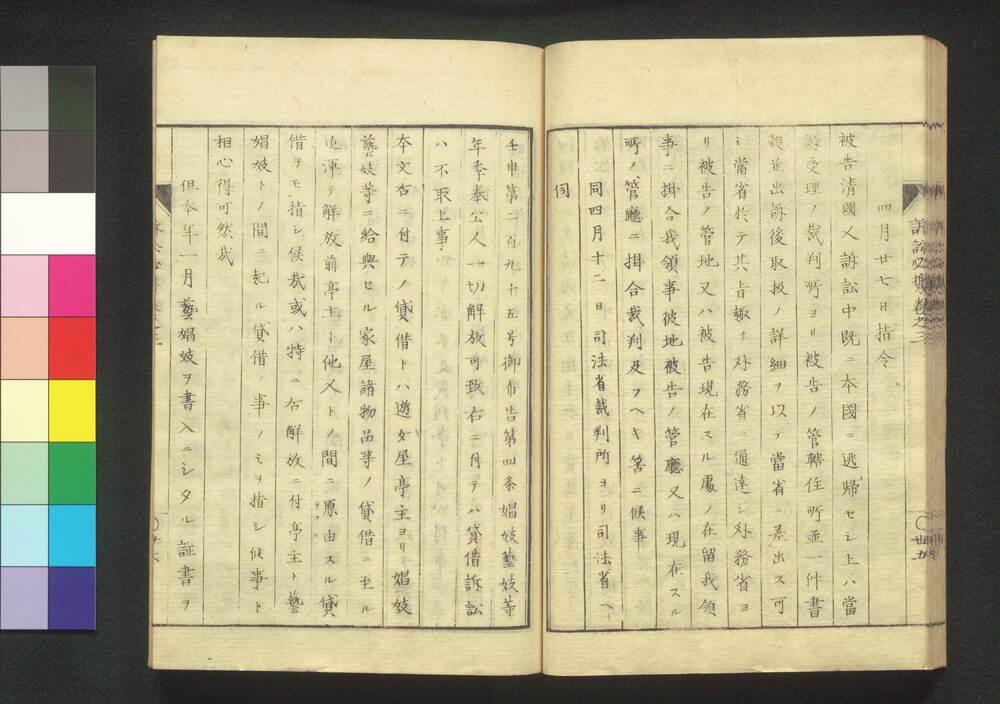 訴訟必携巻之三
四月廿七日指令
被告清國人訴訟中既ニ本國ニ逃帰セシ上ハ當
訴受理ノ裁判所ヨリ被告ノ管轄住所並一件書
類並出訴後取扱ノ詳細ヲ以テ當省ニ差出ス可
シ當省於テ其旨趣ヲ外務省ニ通達シ外務省ヨ
リ被告ノ管地又ハ被告現在スル處ノ在留我領
事ニ掛合我領事彼地被告ノ管廳又ハ現在スル
所ノ管廳ニ掛合裁判及フヘキ筈ニ候事
同四月十二日司法省裁判所ヨリ司法省ヘ
伺
卅五
壬申第二百九十五号御布告第四条娼妓藝妓等
年季奉公人一切解放可致右ニ付テハ貸借訴訟
ハ不取上事
本文右ニ付テノ貸借トハ遊女屋亭主ヨリ娼妓
藝妓等ニ給與セル家屋諸物品等ノ貸借ニ至ル
迄渾テ解放前亭主ト他人トノ間ニ原由スル貸
借ヲモ指シ候哉或ハ特ニ右解放ニ付亭主ト藝
娼妓トノ間ニ起ル貸借ノ事ノミヲ指シ候事ト
相心得可然哉
但本年一月藝娼妓ヲ書入ニシタル証書ヲ